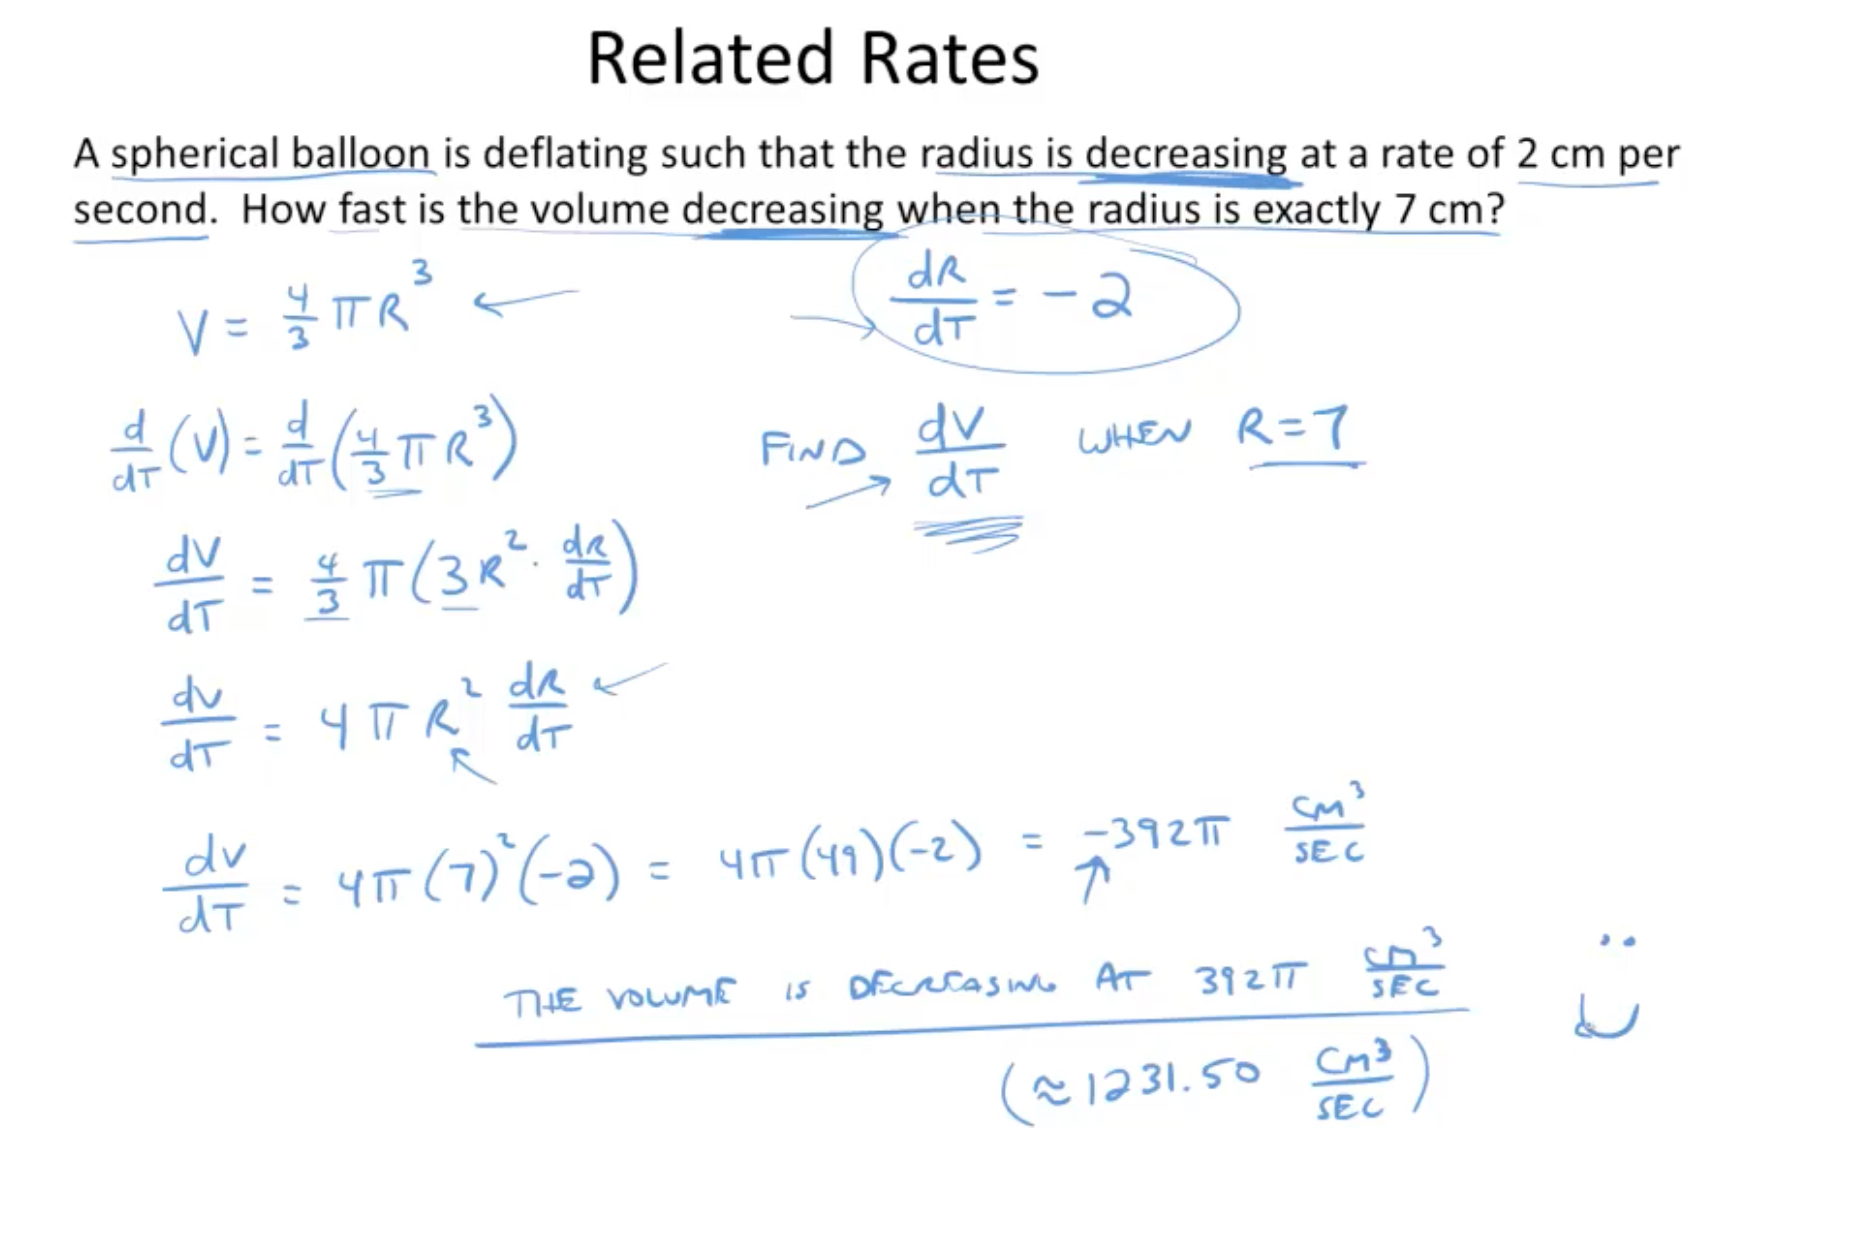 Related Rates
A spherical balloon is deflating such that the radius is decreasing at a rate of 2 cm per
second. How fast is the volume decreasing when the radius is exactly 7 cm?
V = 4/3 πR³
dR/dT = -2
d/dT (V) = d/dT (4/3 πR³)
FIND dV/dT WHEN R=7
dV/dT = 4/3 π(3R² · dR/dT)
dV/dT = 4πR² dR/dT
dV/dT = 4π(7)²(-2) = 4π(49)(-2) = -392π CM³/SEC
THE VOLUME IS DECREASING AT 392π CM³/SEC
(≈1231.50 CM³/SEC)